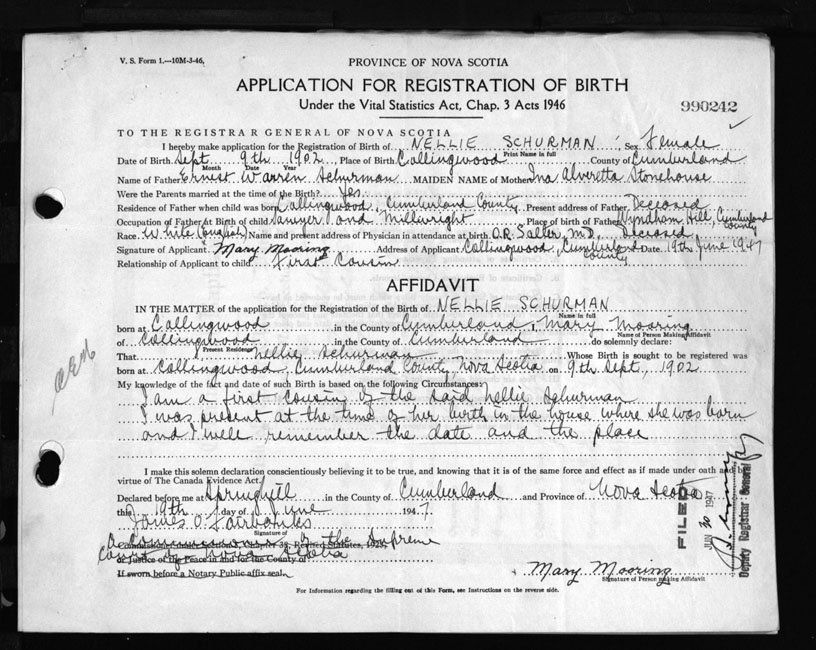 V. S. Form 1.—10M-3-46.
PROVINCE OF NOVA SCOTIA
APPLICATION FOR REGISTRATION OF BIRTH
Under the Vital Statistics Act, Chap. 3 Acts 1946
990242
TO THE REGISTRAR GENERAL OF NOVA SCOTIA
I hereby make application for the Registration of Birth of NELLIE SCHURMAN Sex Female
Print Name in full
Date of Birth Sept 9th 1902 Place of Birth Collingwood County of Cumberland
Month Date Year
Name of Father Ernest Warren Schurman MAIDEN NAME of Mother Ina Alveretta Stonehouse
Were the Parents married at the time of the Birth? Yes
Residence of Father when child was born Collingwood, Cumberland County Present address of Father Deceased
Occupation of Father at Birth of child Sawyer and Millwright Place of birth of Father Wyndham Hill, Cumberland County
Race White (English) Name and present address of Physician in attendance at birth O.R. Salter, M.D. Deceased
Signature of Applicant Mary Mooring Address of Applicant Collingwood, Cumberland County Date 19th June 1947
Relationship of Applicant to child First Cousin
AFFIDAVIT
IN THE MATTER of the application for the Registration of the Birth of NELLIE SCHURMAN
Name in full
born at Collingwood in the County of Cumberland, Mary Mooring
Name of Person Making Affidavit
of Collingwood in the County of Cumberland do solemnly declare:
Present Residence
That Nellie Schurman Whose Birth is sought to be registered was
born at Collingwood, Cumberland County Nova Scotia on 9th Sept, 1902
My knowledge of the fact and date of such Birth is based on the following Circumstances:
I am a first cousin of the said Nellie Schurman
I was present at the time of her birth in the house where she was born
and I well remember the date and the place
I make this solemn declaration conscientiously believing it to be true, and knowing that it is of the same force and effect as if made under oath and by
virtue of The Canada Evidence Act.
Declared before me at Springhill in the County of Cumberland and Province of Nova Scotia
this 19th day of June 1947
James O. Fairbanks
A Commissioner of the Supreme
Court of Nova Scotia
or Justice of the Peace in and for the County of
If sworn before a Notary Public affix seal.
Mary Mooring
Signature of Person making Affidavit
FILED
JUN 30 1947
Deputy Registrar General
For Information regarding the filling out of this Form, see Instructions on the reverse side.